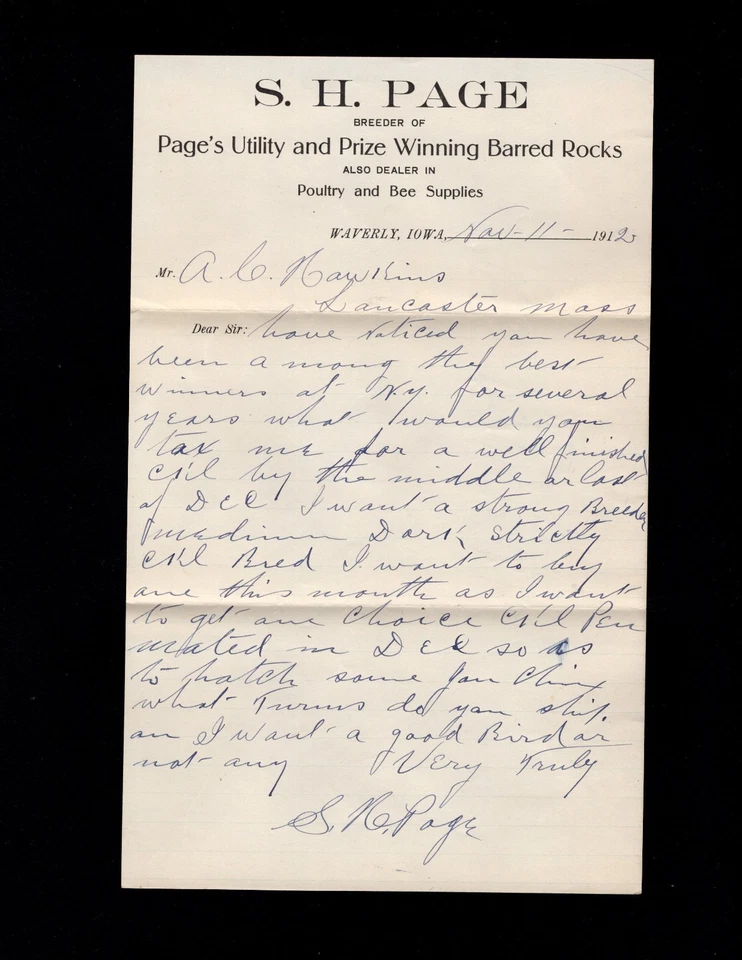 S. H. PAGE
BREEDER OF
Page's Utility and Prize Winning Barred Rocks
ALSO DEALER IN
Poultry and Bee Supplies
WAVERLY, IOWA, Nov-11- 1912
Mr. A. C. Hawkins
Lancaster Mass
Dear Sir: have noticed you have
been a mong the best
winners at N.Y. for several
years what would you
tax me for a well finished
Ck'l by the middle or last
of DEC I want a strong Breeder
medium Dark strictly
Ck'l Bred I want to buy
one this month as I want
to get one choice Ck'l Pen
mated in DEC so as
to hatch some Jan Chix
what Turms do you ship
on I want a good Bird or
not any Very Truly
S. H. Page